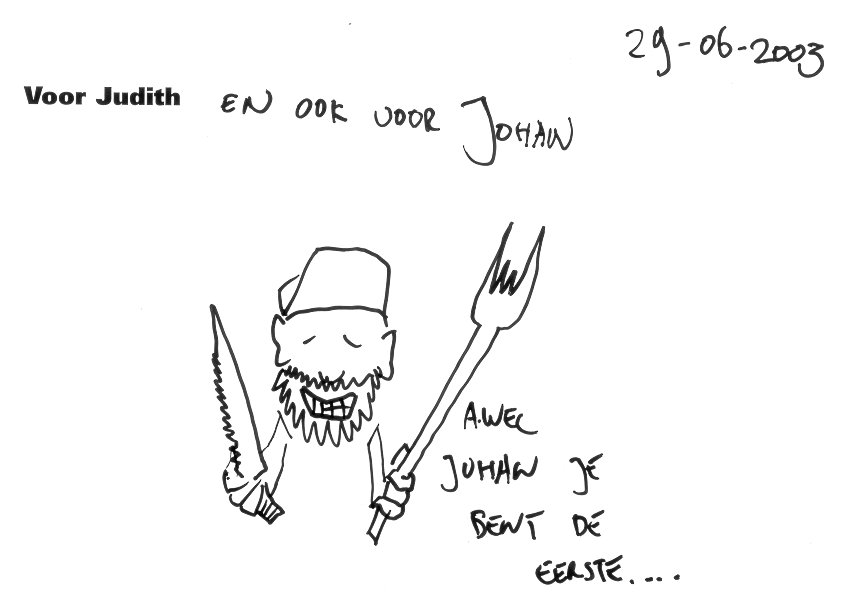 29-06-2003
Voor Judith EN OOK VOOR JOHAN
A.WEL
JOHAN JE
BENT DE
EERSTE.....